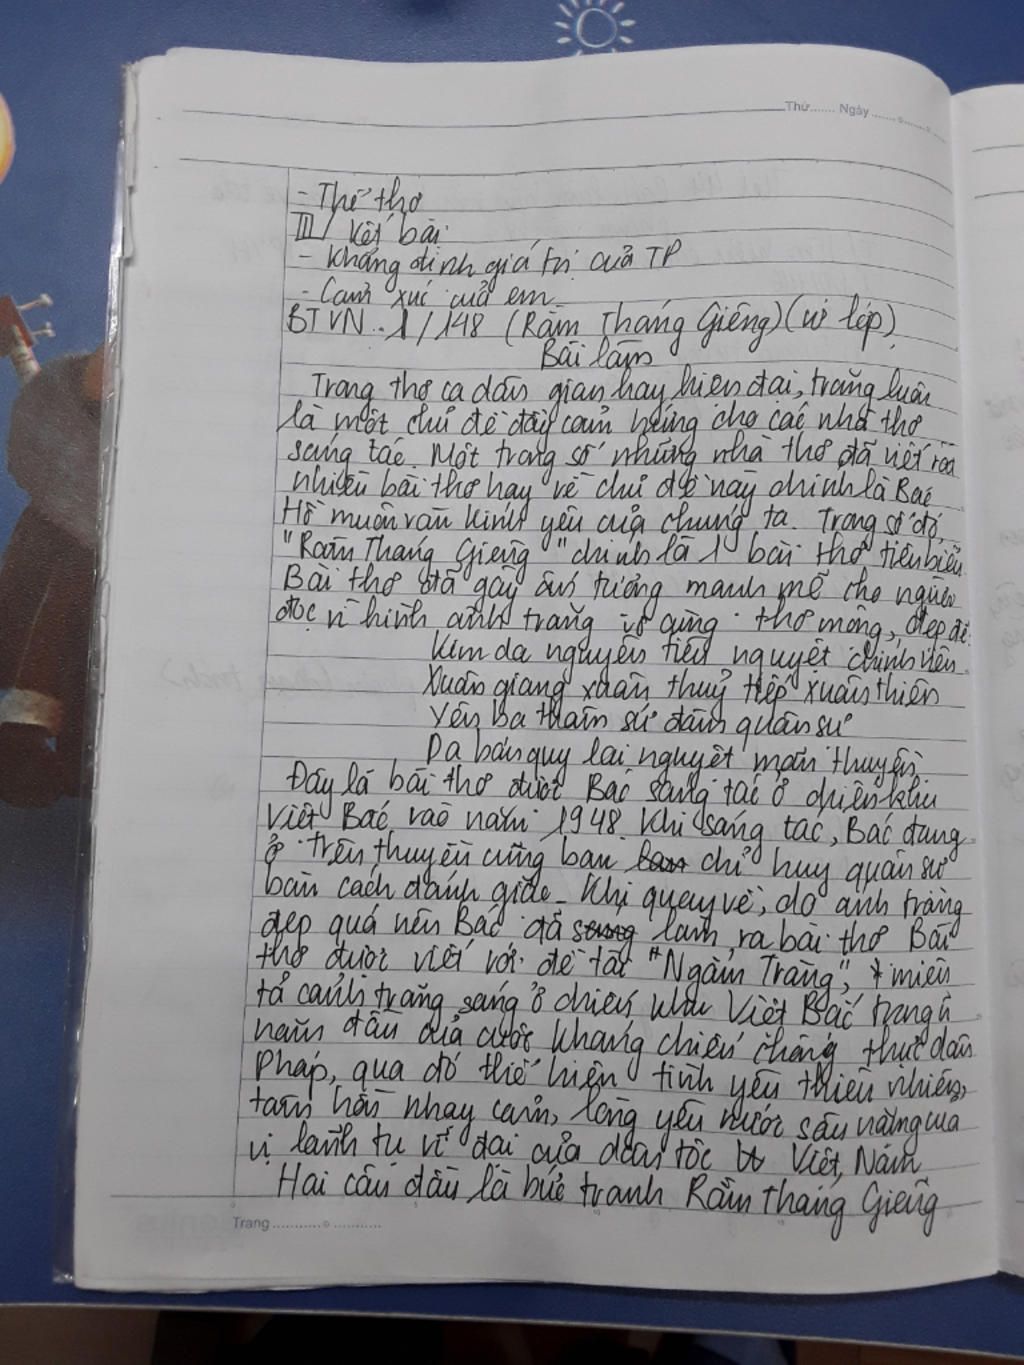 Thứ....... Ngày.......
- Thể thơ
III/ Kết bài
- Khẳng định giá trị của TP
- Cảm xúc của em
BTVN: 1/148 (Rằm Tháng Giêng) (ở lớp)
Bài làm
Trong thơ ca dân gian hay hiện đại, trăng luôn
là một chủ đề đầy cảm hứng cho các nhà thơ
sáng tác. Một trong số những nhà thơ đã viết rất
nhiều bài thơ hay về chủ đề này chính là Bác
Hồ muôn vàn kính yêu của chúng ta. Trong số đó,
"Rằm Tháng Giêng" chính là 1 bài thơ tiêu biểu
Bài thơ đã gây ấn tượng mạnh mẽ cho người
đọc vì hình ảnh trăng vô cùng thơ mộng, đẹp đẽ:
Kim dạ nguyên tiêu nguyệt chính viên
Xuân giang xuân thuỷ tiếp xuân thiên
Yên ba thâm sứ đàm quân sự
Dạ bán quy lai nguyệt mãn thuyền
Đây là bài thơ được Bác sáng tác ở chiến khu
Việt Bắc vào năm 1948. Khi sáng tác, Bác đang
ở trên thuyền cùng ban chỉ huy quân sự
bàn cách đánh giặc. Khi quay về, do ánh trăng
đẹp quá nên Bác đã làm ra bài thơ Bài
thơ được viết với đề tài "Ngắm Trăng", miêu
tả cảnh trăng sáng ở chiến khu Việt Bắc trong n~
năm đầu của cuộc kháng chiến chống thực dân
Pháp, qua đó thể hiện tình yêu thiên nhiên,
tâm hồn nhạy cảm, lòng yêu nước sâu nặng của
vị lãnh tụ vĩ đại của dân tộc Việt Nam
Hai câu đầu là bức tranh Rằm Tháng Giêng
Trang.......